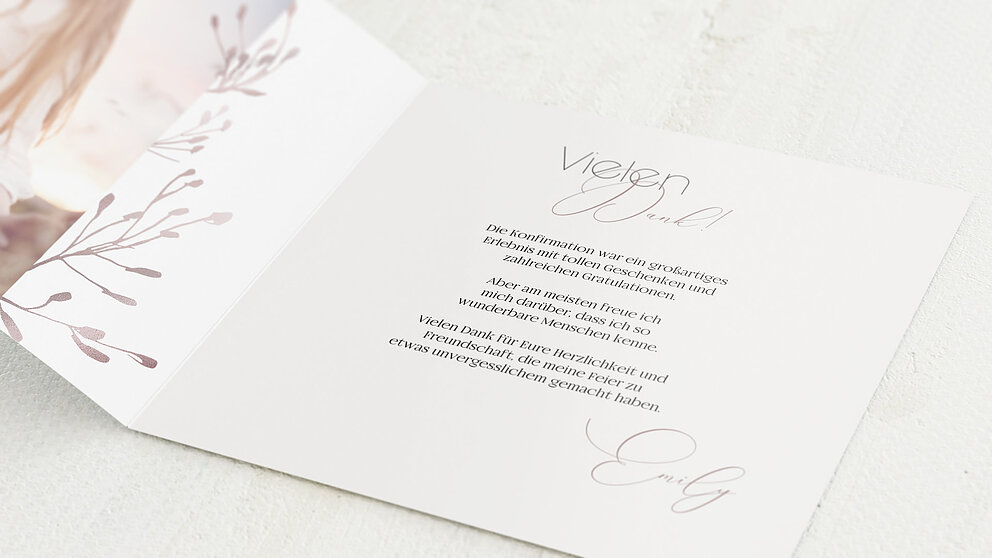 Vielen
Dank!
Die Konfirmation war ein großartiges
Erlebnis mit tollen Geschenken und
zahlreichen Gratulationen.
Aber am meisten freue ich
mich darüber, dass ich so
wunderbare Menschen kenne.
Vielen Dank für Eure Herzlichkeit und
Freundschaft, die meine Feier zu
etwas unvergesslichem gemacht haben.
Emily